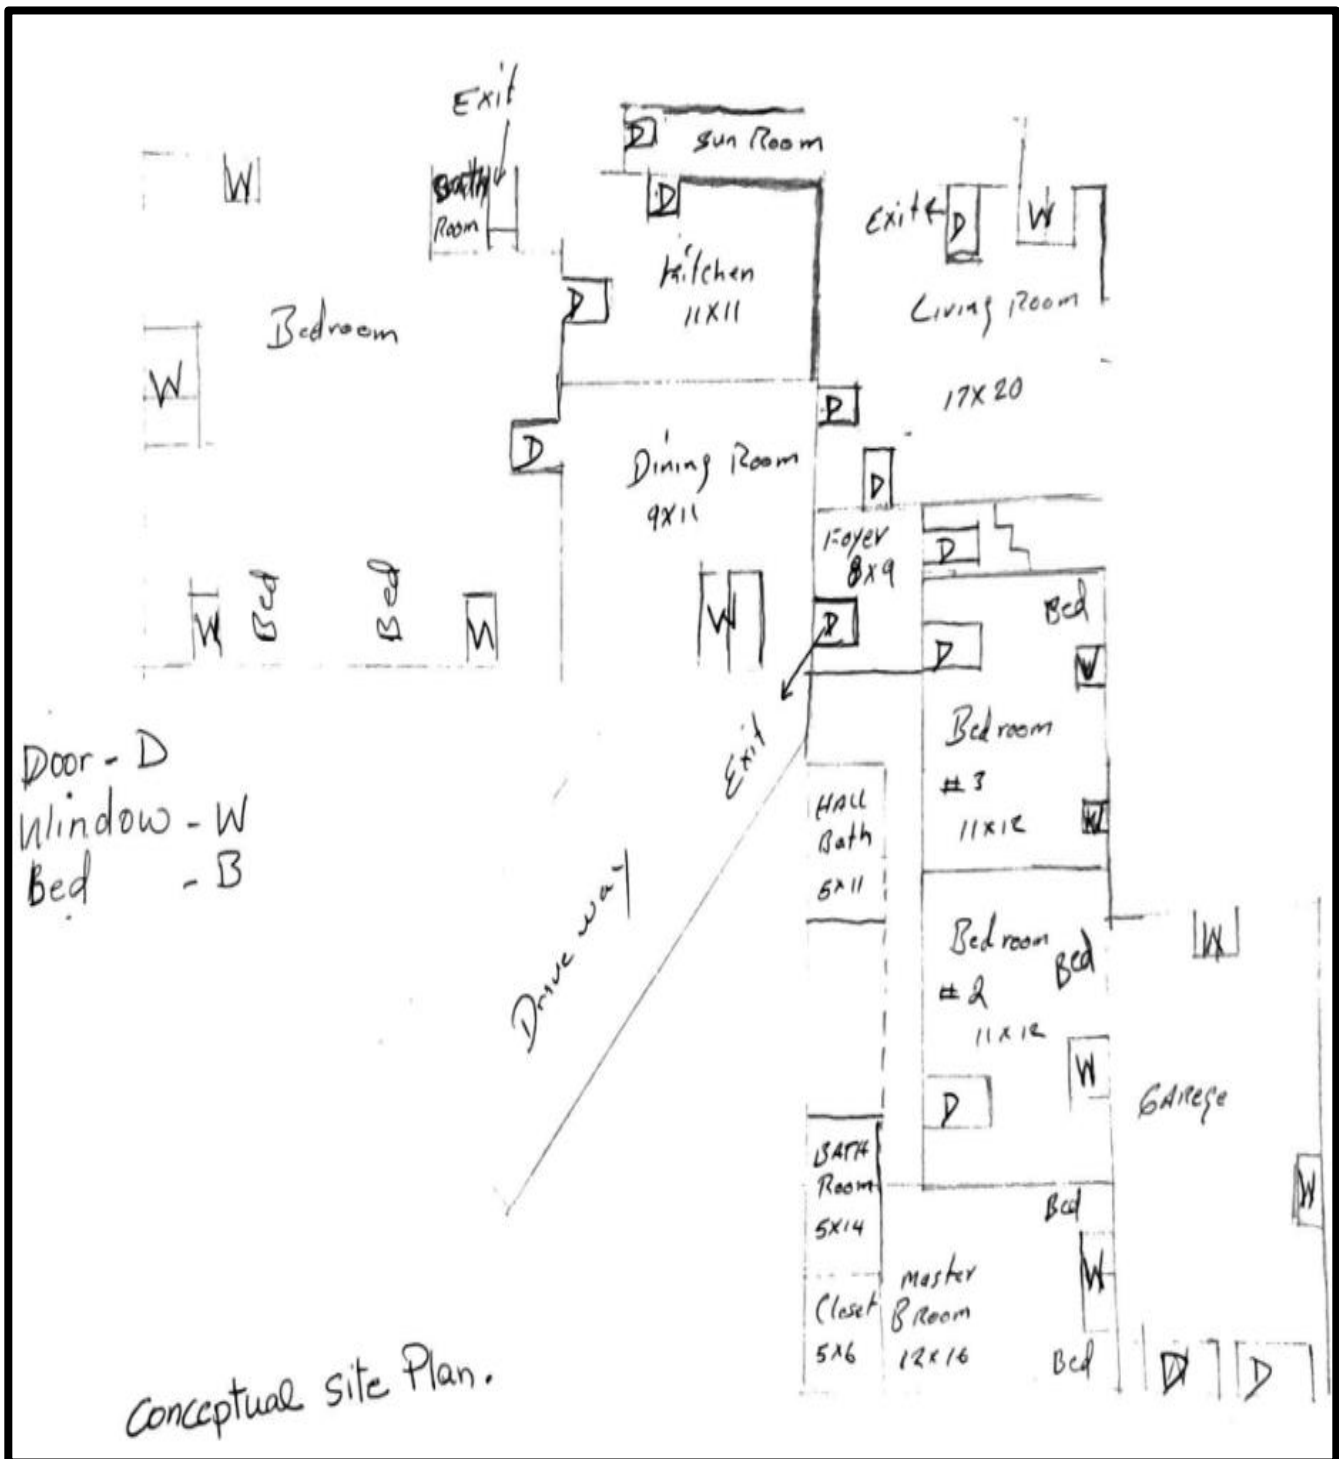 Exit
D
Sun Room
W
Bath
Room
D
Exit
D
W
Kitchen
11X11
D
Living Room
Bedroom
W
D
17X20
D
Dining Room
D
9X11
Foyer
8X9
D
W
Bed
Bed
W
W
D
Bed
D
W
Exit
Bedroom
#3
11X12
W
Door - D
Window - W
Bed - B
HALL
Bath
5X11
Drive way
Bedroom
#2
11X12
Bed
W
W
D
GAREGE
BATH
Room
5X14
W
Bed
W
Closet
5X6
Master
B Room
12X16
Bed
D
D
Conceptual Site Plan.